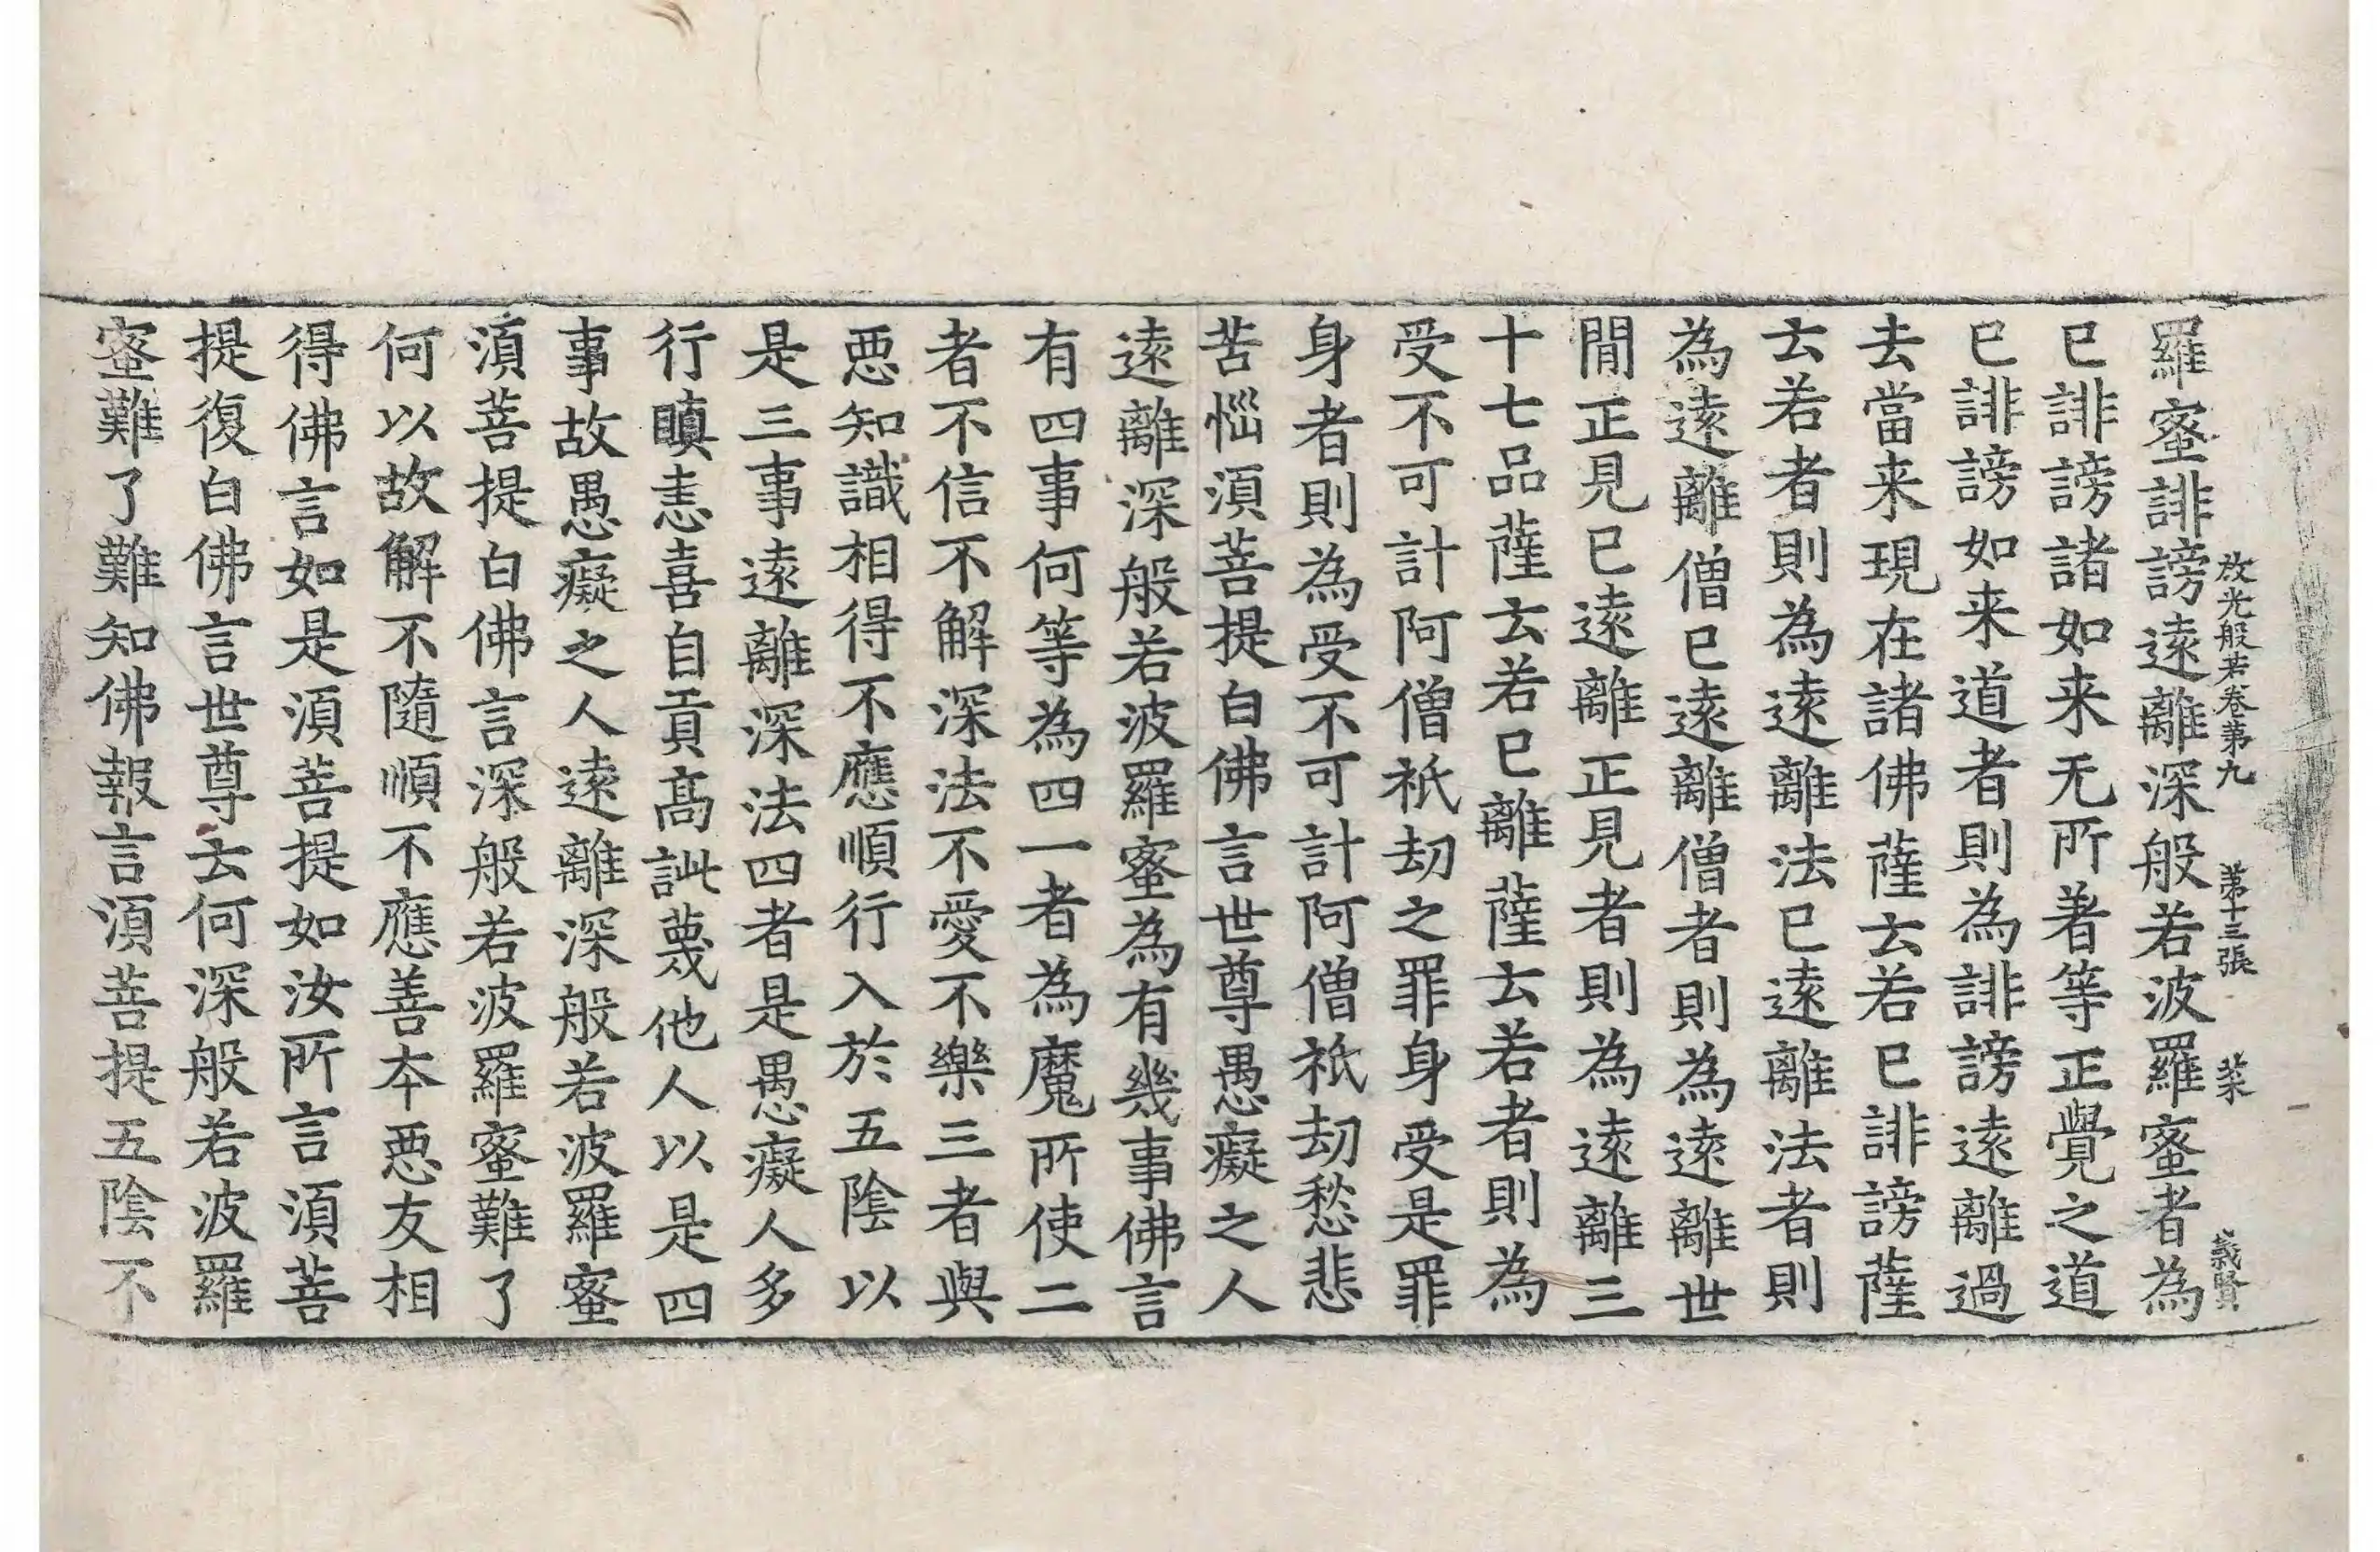 放光般若卷第九　第十三張　菜　義賢
羅蜜誹謗遠離深般若波羅蜜者為
已誹謗諸如来无所著等正覺之道
已誹謗如来道者則為誹謗遠離過
去當来現在諸佛薩云若已誹謗薩
云若者則為遠離法已遠離法者則
為遠離僧已遠離僧者則為遠離世
閒正見已遠離正見者則為遠離三
十七品薩云若已離薩云若者則為
受不可計阿僧祇劫之罪身受是罪
身者則為受不可計阿僧祇劫愁悲
苦惱湏菩提白佛言世尊愚癡之人
遠離深般若波羅蜜為有幾事佛言
有四事何等為四一者為魔所使二
者不信不解深法不愛不樂三者與
惡知識相得不應順行入於五陰以
是三事遠離深法四者是愚癡人多
行瞋恚喜自貢高訿蔑他人以是四
事故愚癡之人遠離深般若波羅蜜
湏菩提白佛言深般若波羅蜜難了
何以故解不隨順不應善本惡友相
得佛言如是湏菩提如汝所言湏菩
提復白佛言世尊云何深般若波羅
蜜難了難知佛報言湏菩提五陰不